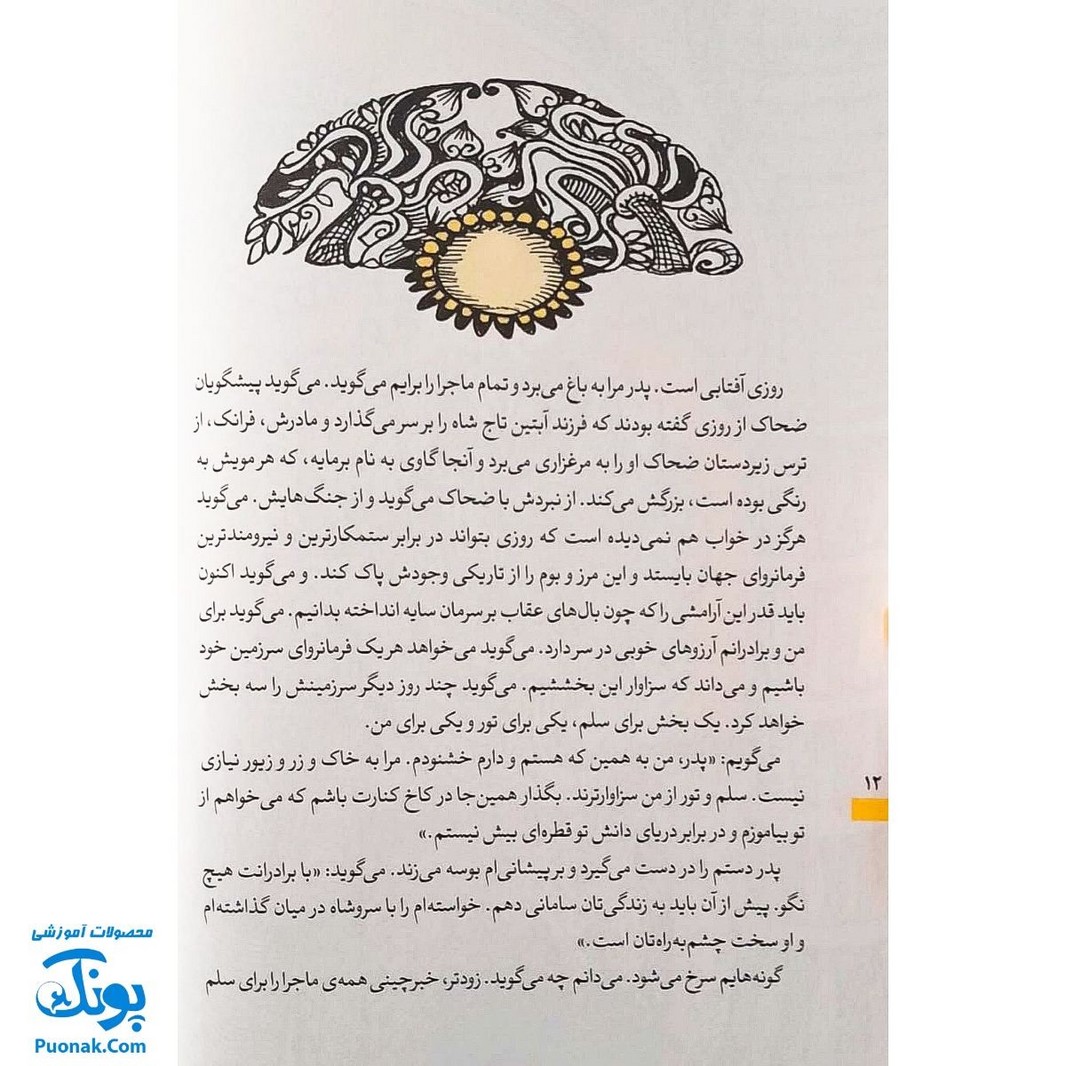 روزی آفتابی است. پدر مرا به باغ می‌برد و تمام ماجرا را برایم می‌گوید. می‌گوید پیشگویان
ضحاک از روزی گفته بودند که فرزند آبتین تاج شاه را بر سر می‌گذارد و مادرش، فرانک، از
ترس زیردستان ضحاک او را به مرغزاری می‌برد و آنجا گاوی به نام برمایه، که هر مویش به
رنگی بوده است، بزرگش می‌کند. از نبردش با ضحاک می‌گوید و از جنگ‌هایش. می‌گوید
هرگز در خواب هم نمی‌دیده است که روزی بتواند در برابر ستمکارترین و نیرومندترین
فرمانروای جهان بایستد و این مرز و بوم را از تاریکی وجودش پاک کند. و می‌گوید اکنون
باید قدر این آرامشی را که چون بال‌های عقاب بر سرمان سایه انداخته بدانیم. می‌گوید برای
من و برادرانم آرزوهای خوبی در سر دارد. می‌گوید می‌خواهد هر یک فرمانروای سرزمین خود
باشیم و می‌داند که سزاوار این بخششیم. می‌گوید چند روز دیگر سرزمینش را سه بخش
خواهد کرد. یک بخش برای سلم، یکی برای تور و یکی برای من.
می‌گویم: «پدر، من به همین که هستم و دارم خشنودم. مرا به خاک و زر و زیور نیازی
نیست. سلم و تور از من سزاوارترند. بگذار همین‌جا در کاخ کنارت باشم که می‌خواهم از
تو بیاموزم و در برابر دریای دانش تو قطره‌ای بیش نیستم.»
پدر دستم را در دست می‌گیرد و بر پیشانی‌ام بوسه می‌زند. می‌گوید: «با برادرانت هیچ
نگو. پیش از آن باید به زندگی‌تان سامانی دهم. خواسته‌ام را با سروشاه در میان گذاشته‌ام
و او سخت چشم‌به‌راه‌تان است.»
گونه‌هایم سرخ می‌شود. می‌دانم چه می‌گوید. زودتر، خبرچینی همه‌ی ماجرا را برای سلم
۱۲
محصولات آموزشی
پونک
Puonak.Com